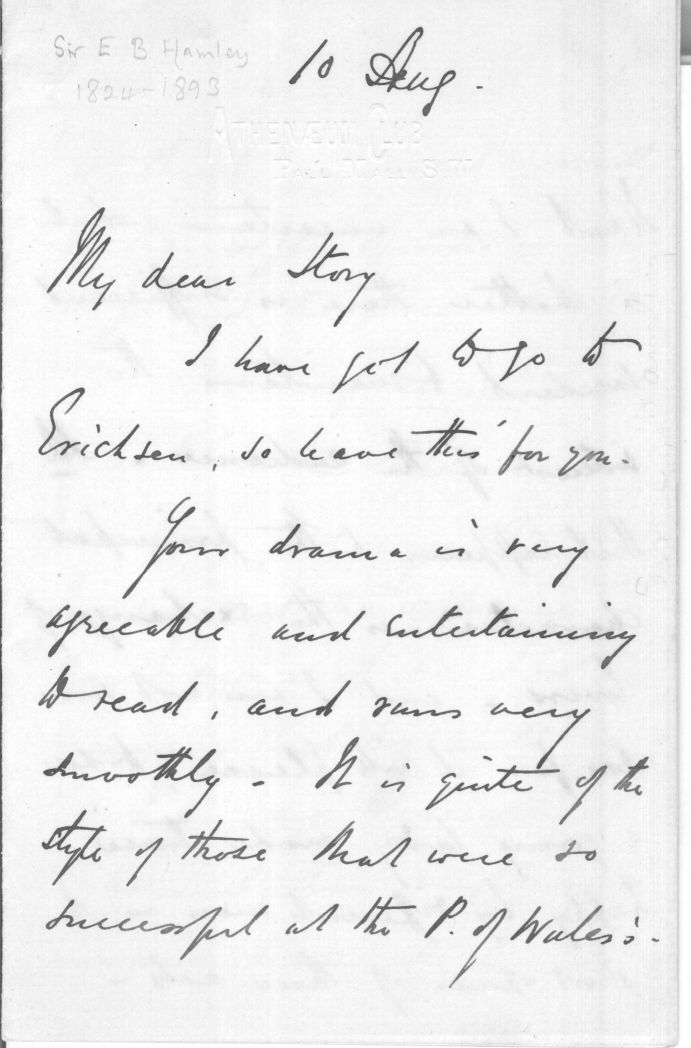 Sir E B Hamley
1824-1893
10 Aug.
ATHENÆUM CLUB
PALL MALL S.W.
My dear Story
I have got to go to
Erichsen, so leave this for you.
Your drama is very
agreeable and entertaining
to read, and runs very
smoothly. It is quite of the
style of those that were so
successful at the P. of Wales's.